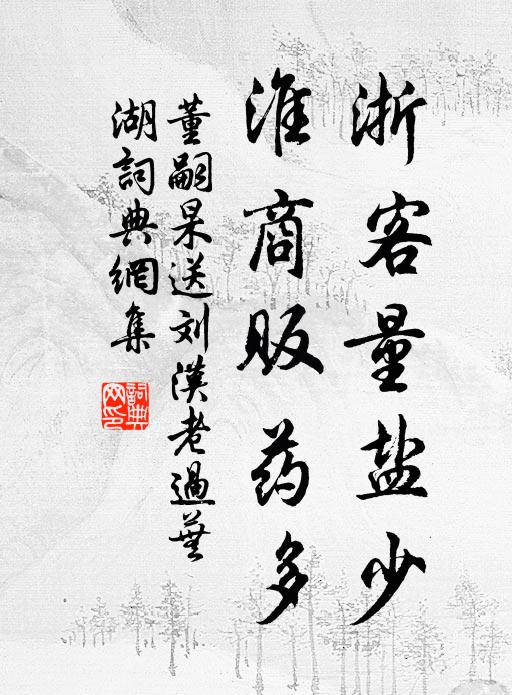 浙客量盐少
淮商贩药多
董嗣杲送刘漢老過蕪
湖詞典網集
詞典网印